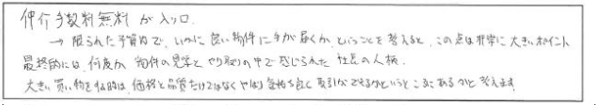 仲介手数料無料が入り口。
→ 限られた予算内で、いかに良い物件に手が届くか、ということを考えると、この点は非常に大きいポイント
最終的には、何度か物件の見学とやり取りの中で感じられた社長の人柄。
大きい買い物をする時は、価格と品質だけではなくやはり気持ち良く取引ができるかというところにあるかと考えます